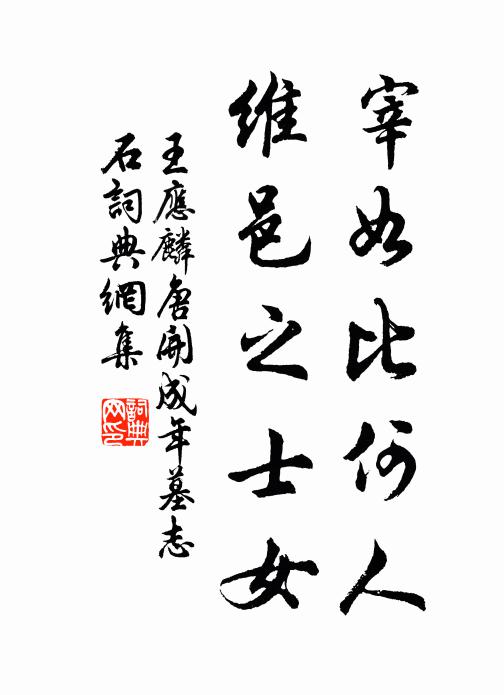 宰如比何人
維邑之士女
王應麟唐開成年墓志
石詞典網集
詞典
网印